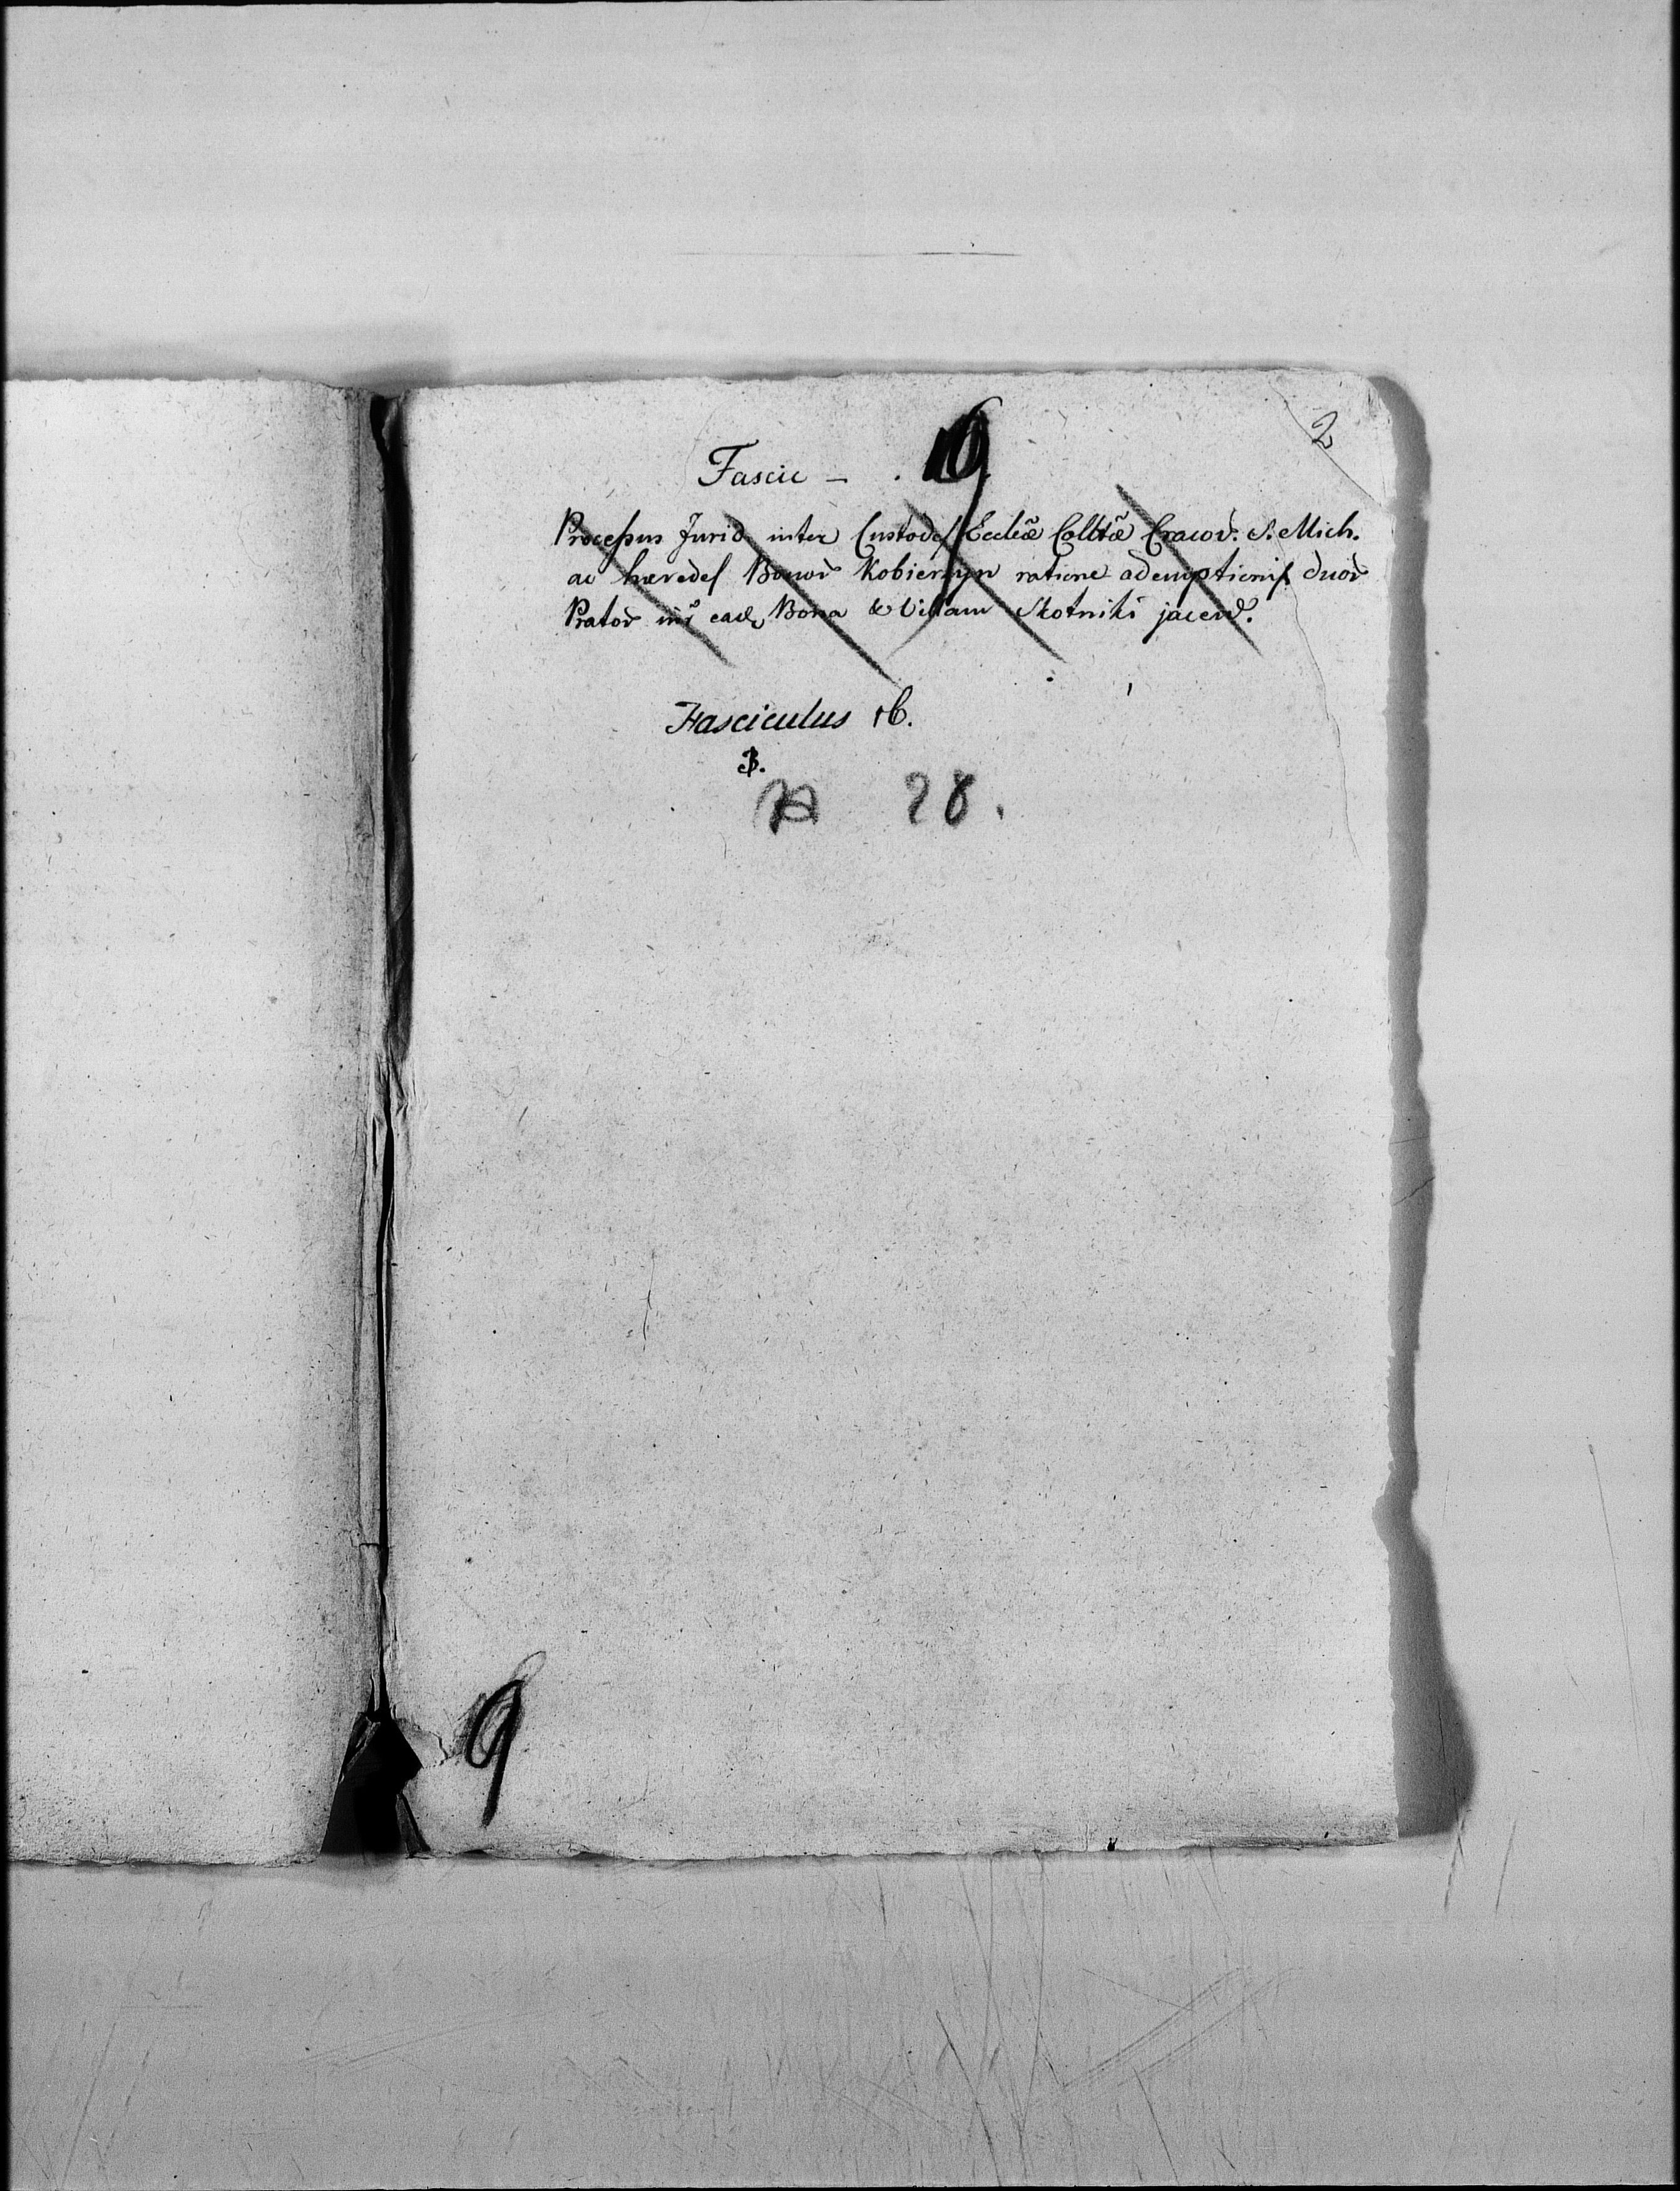 2
Fascic - . 9
Processus Jurid inter Custodes Eccleæ Colltæ Cracov. S. Mich.
ac hæredes Bonor Kobierzyn ratione ademptionis duor
Prator inr ead Bona & Villam Skotniki jacen.
Fasciculus 16.
B.
28.
9